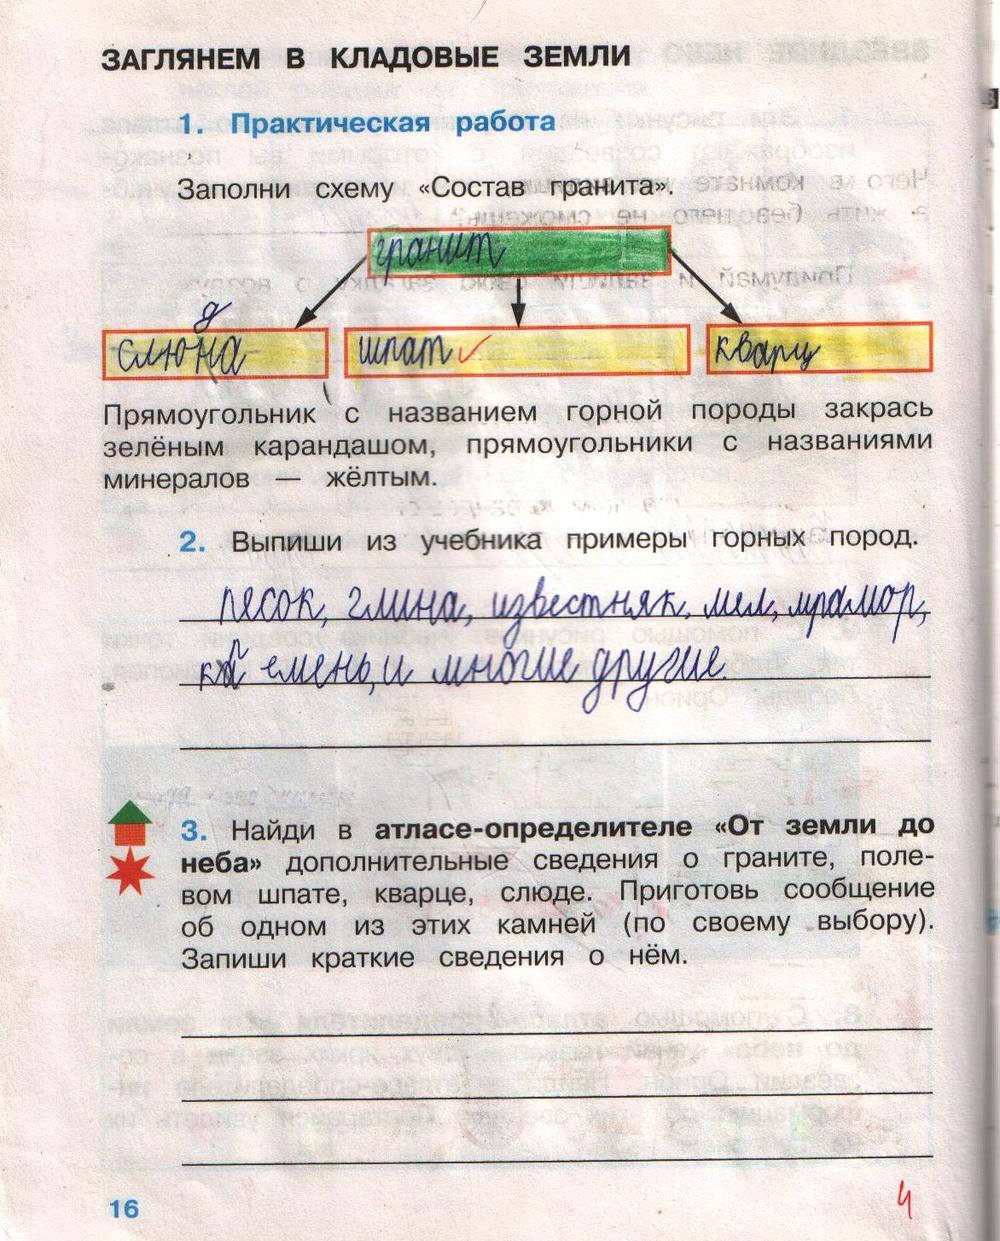 ЗАГЛЯНЕМ В КЛАДОВЫЕ ЗЕМЛИ
1. Практическая работа
Заполни схему «Состав гранита».
гранит
д
слюна шпат кварц
Прямоугольник с названием горной породы закрась
зелёным карандашом, прямоугольники с названиями
минералов — жёлтым.
2. Выпиши из учебника примеры горных пород.
песок, глина, известняк, мел, мрамор,
емень, и многие другие.
3. Найди в атласе-определителе «От земли до
неба» дополнительные сведения о граните, поле-
вом шпате, кварце, слюде. Приготовь сообщение
об одном из этих камней (по своему выбору).
Запиши краткие сведения о нём.
16
4